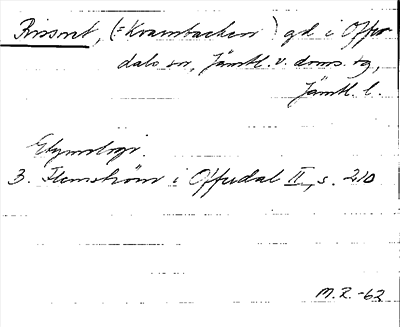 Rissnet, (= Krambacken) gd i Offer
dals sn, Jämtl. v. doms. tg,
Jämtl. l.
Etymologi.
B. Flemström i Offerdal II, s. 210
M.Z. -62